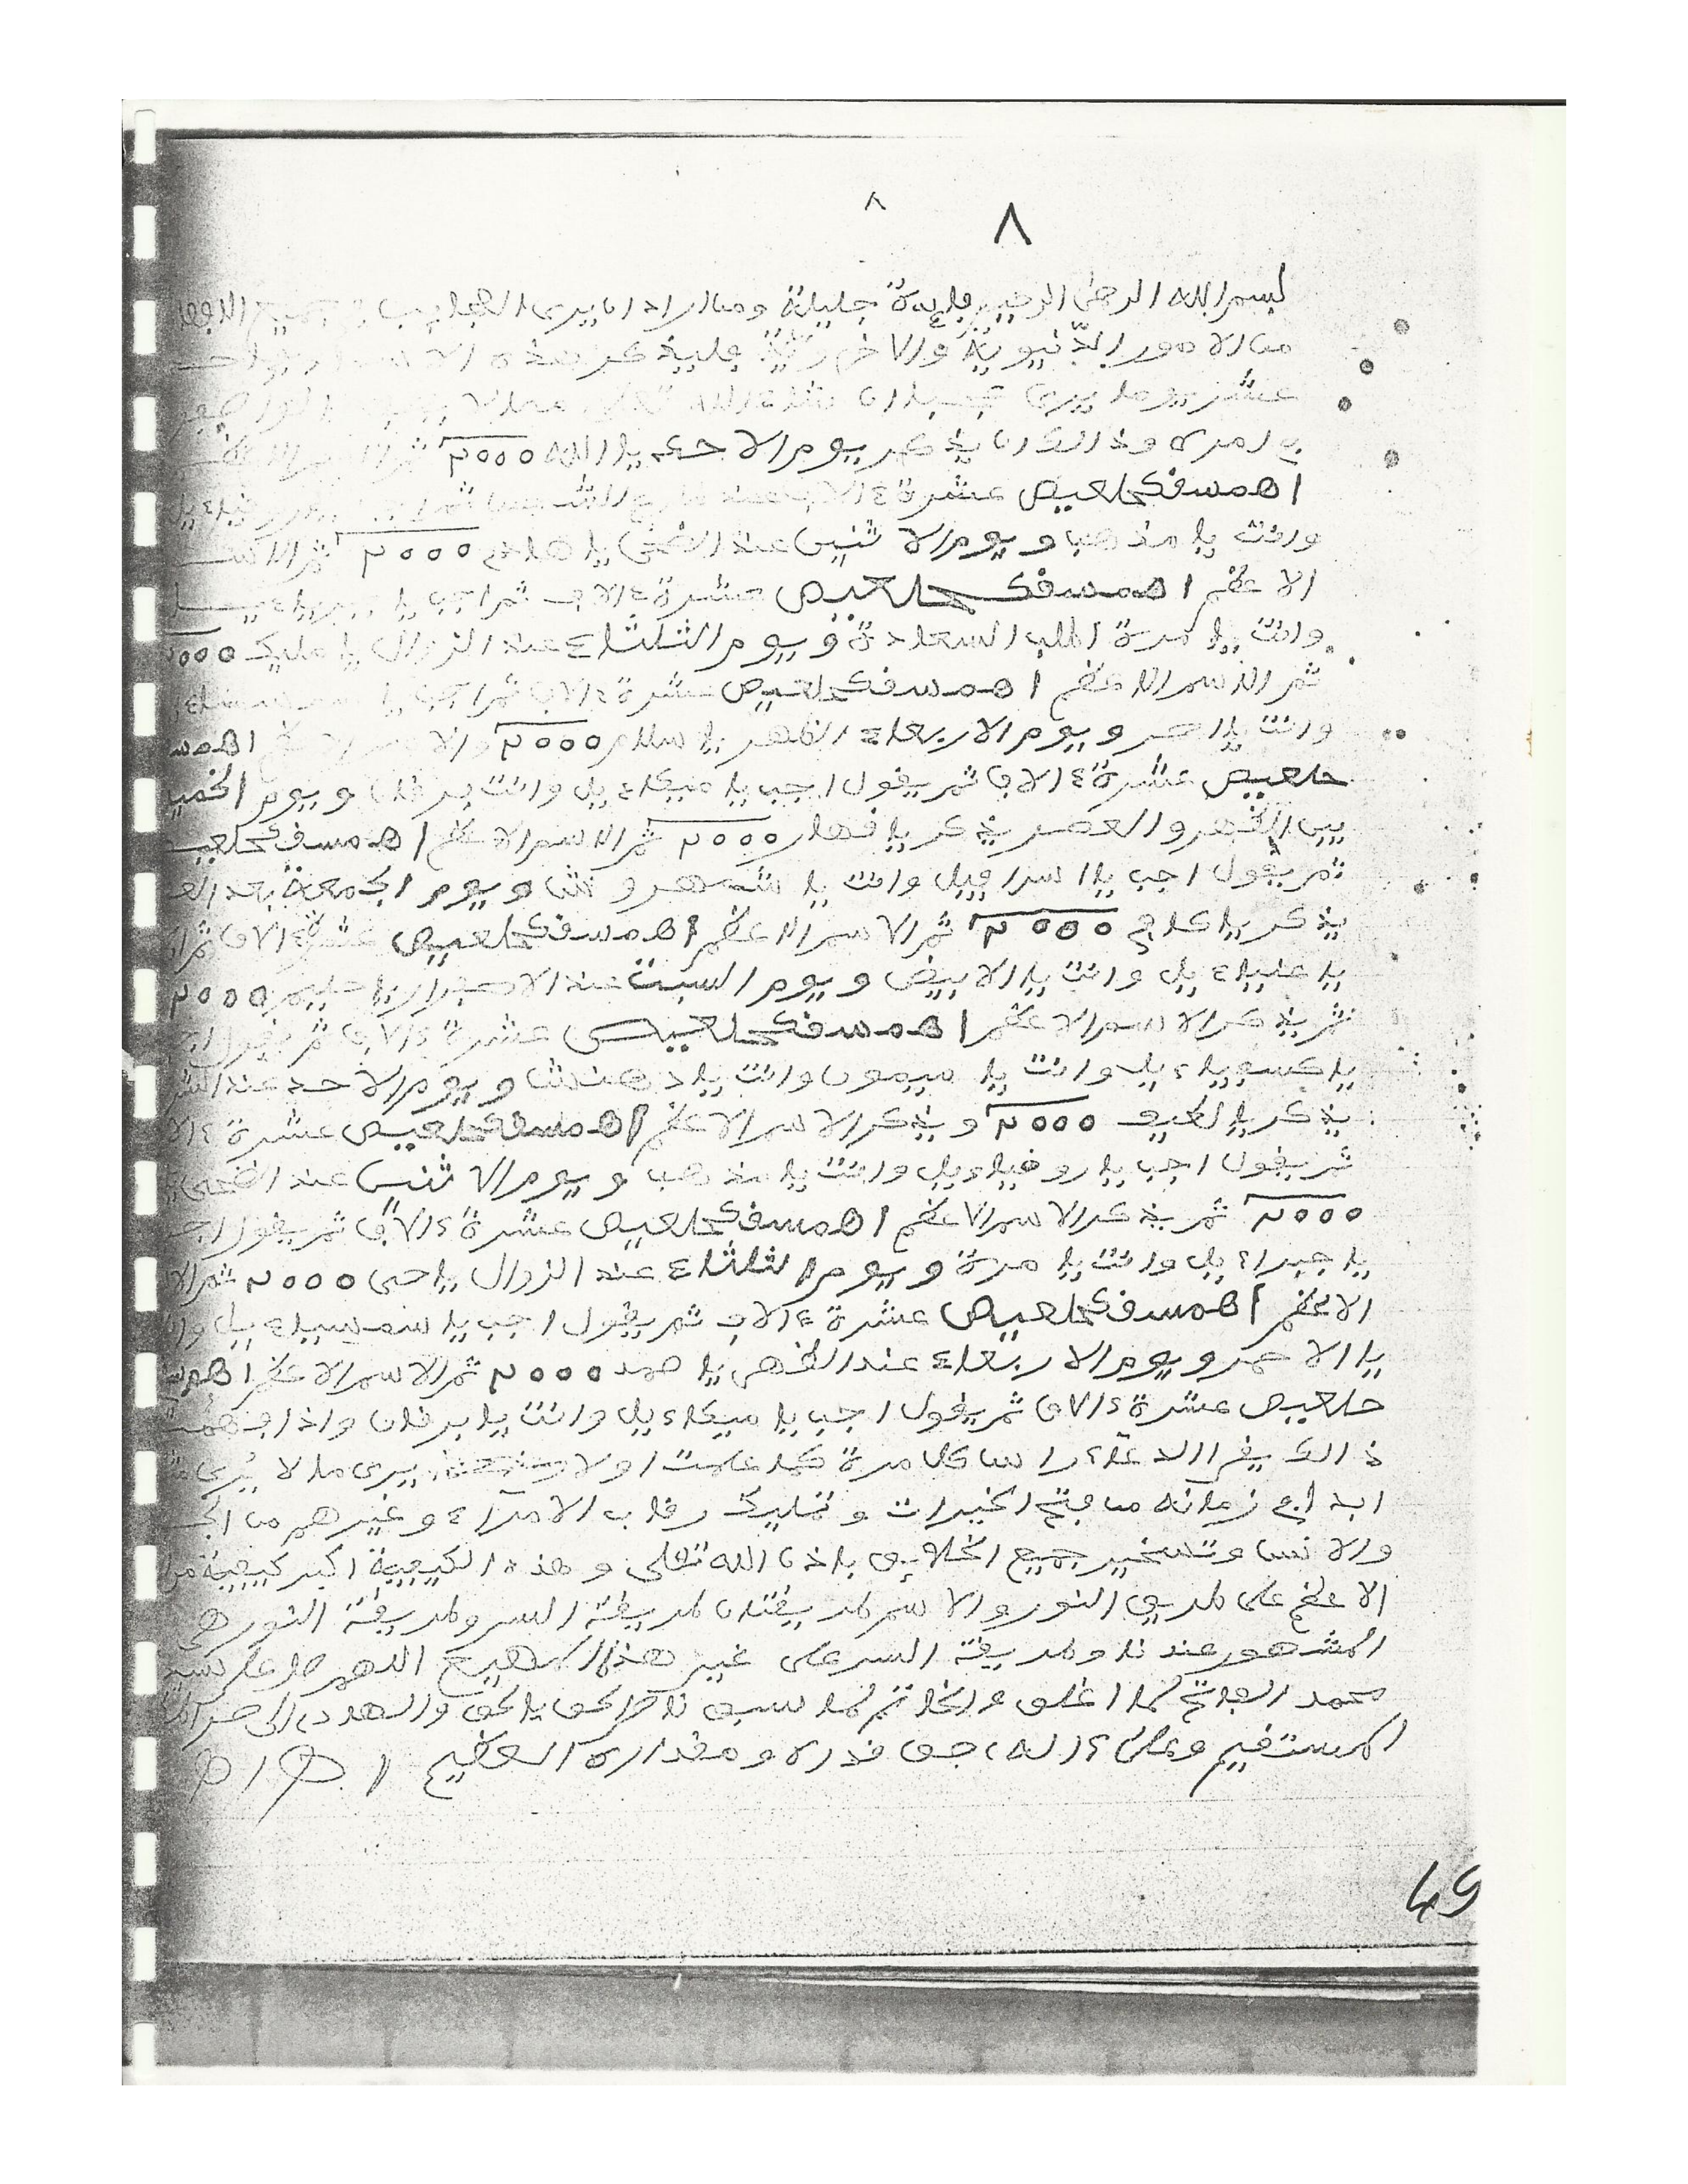 ٨ ٨
بسم الله الرحمن الرحيم فايدة جليلة ومن اراد ان يرى العجايب في جميع
من الامور الدنيوية والاخروية فليذكر هذه الاسماء
عشر يوما يرى عجبا ان شاء الله تعالى
في امره وذالك ان يذكر يوم الاحد يا الله ٢٠٠٠ ثم الاسم الاعظم
اهمسقكحلعيص عشرة ءالاف عند
وانت يا مذهب ويوم الاثنين عند الضحى يا هادي ٢٠٠٠ ثم الاسم
الاعظم اهمسقكحلعيص عشرة ءالاف ثم اجب يا جبراءيل
وانت يا مرة اطلب السعادة ويوم الثلثاء عند الزوال يا مليك ٢٠٠٠
ثم الاسم الاعظم اهمسقكحلعيص عشرة ءالاف ثم اجب يا
وانت يا احمر ويوم الاربعاء الظهر يا سلام ٢٠٠٠ والاسم الاعظم اهمسق
حلعيص عشرة ءالاف ثم يقول اجب يا ميكاءيل وانت يا برقان ويوم الخميس
بين الظهر والعصر يذكر يا قهار ٢٠٠٠ ثم الاسم الاعظم اهمسقكحلعيص
ثم يقول اجب يا اسرافيل وانت يا شمهروش ويوم الجمعة بعد
يذكر يا كافي ٢٠٠٠ ثم الاسم الاعظم اهمسقكحلعيص عشرة ءالاف ثم
يا عنياءيل وانت يا الابيض ويوم السبت عند الاصفرار يا حليم ٢٠٠٠
ثم يذكر الاسم الاعظم اهمسقكحلعيص عشرة ءالاف ثم يقول
يا كسفياءيل وانت يا ميمون وانت يا دهنش ويوم الاحد عند
يذكر يا لطيف ٢٠٠٠ ويذكر الاسم الاعظم اهمسقكحلعيص عشرة
ثم يقول اجب يا روقياءيل وانت يا مذهب ويوم الاثنين عند الضحى
٢٠٠٠ ثم يذكر الاسم الاعظم اهمسقكحلعيص عشرة ءالاف ثم يقول
يا جبراءيل وانت يا مرة ويوم الثلثاء عند الزوال يا حي ٢٠٠٠ ثم
الاعظم اهمسقكحلعيص عشرة ءالاف ثم يقول اجب يا سمسياءيل
يا الاحمر ويوم الاربعاء عند الظهر يا صمد ٢٠٠٠ ثم الاسم الاعظم اهمسق
حلعيص عشرة ءالاف ثم يقول اجب يا ميكاءيل وانت يا برقان واذا
ذالك يقرا الدعاء راس كل مرة كما علمت اولا يرى ما لا يرى
ابدا في زمانه من فتح الخيرات وتمليك رقاب الامراء وغيرهم من
والانس وتسخير جميع الخلايق باذن الله تعلى وهذه الكيفية اكبر كيفية من
الاعظم على طريق النور والاسم طريقتان طريقة السر وطريقة النور هي
المشهور عندنا وطريقة السر على غير هذا المهيع اللهم صل على سيدنا
محمد الفاتح لما اغلق والخاتم لما سبق ناصر الحق بالحق والهادي الى صراطك
المستقيم وعلى ءاله حق قدره ومقداره العظيم اهـ
49